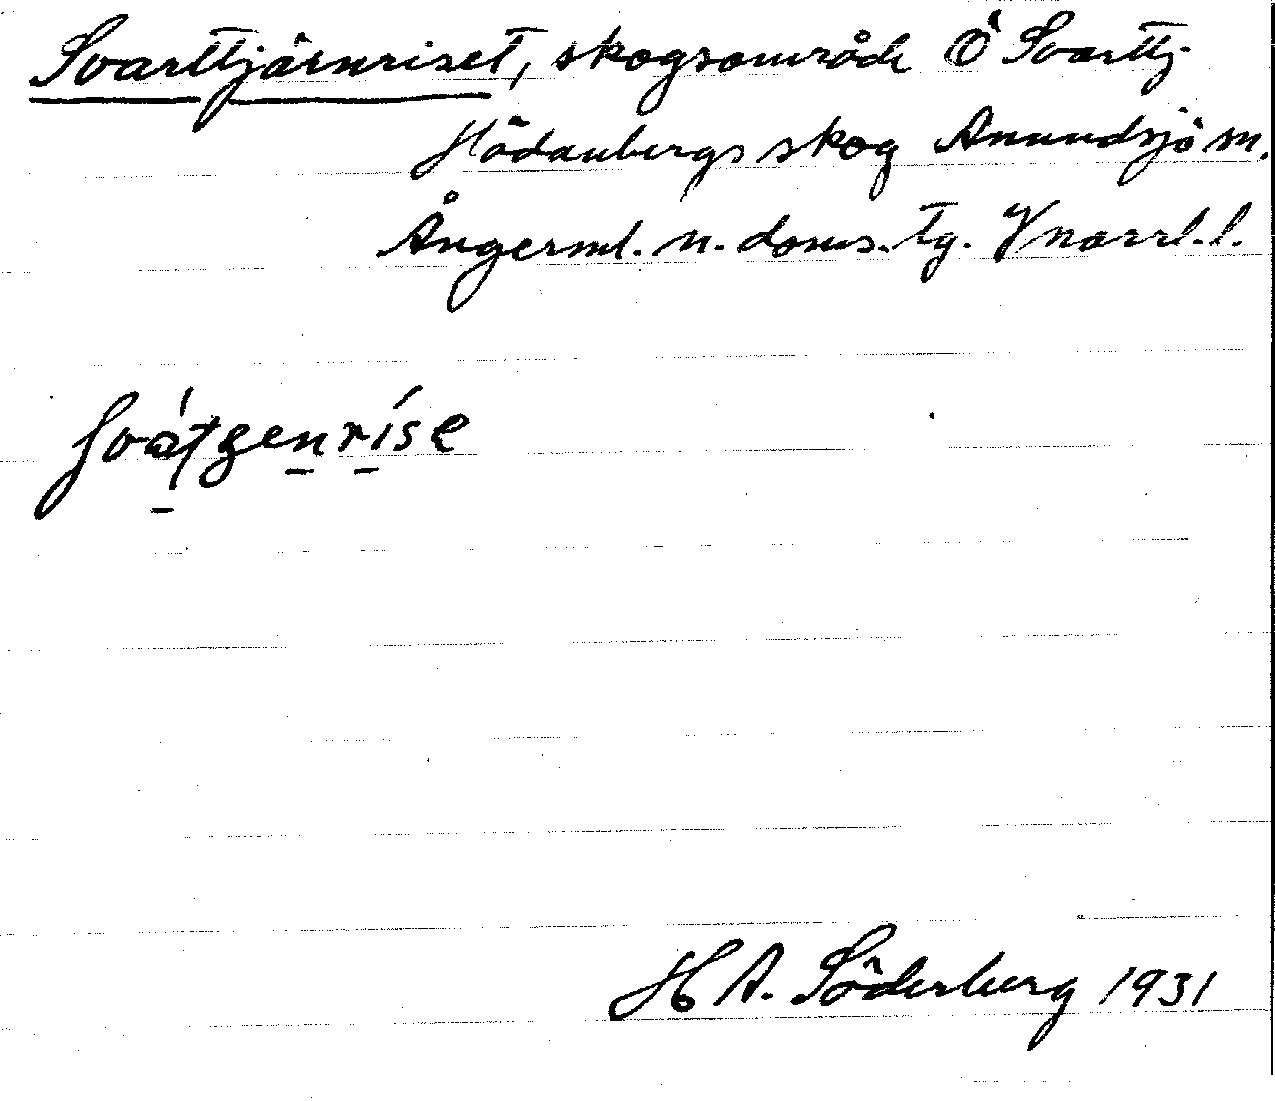 Svarttjärnriset, skogsområde Ö Svarttj.
Hädanbergs skog Anundsjö sn.
Ångerml. n. doms. tg. Vnorrl. l.
svátgenríse
H A. Söderberg 1931